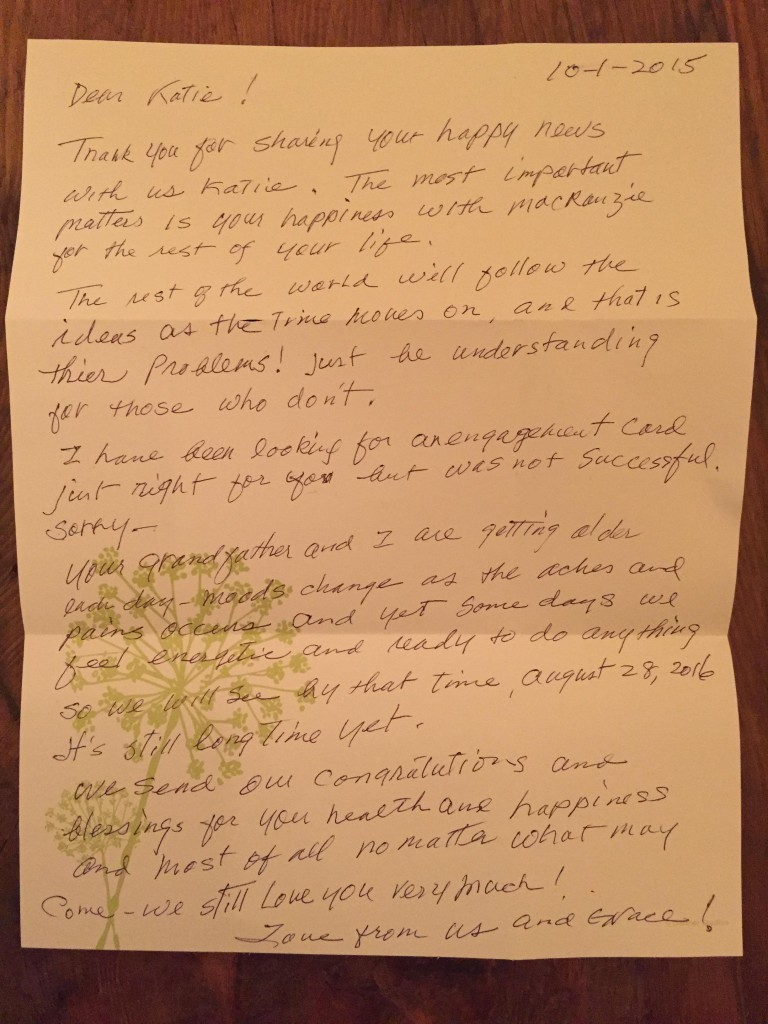 10-1-2015
Dear Katie!
Thank you for sharing your happy news
with us Katie. The most important
matters is your happiness with MacKanzie
for the rest of your life.
The rest of the world will follow the
ideas as the Time moves on, and that is
thier Problems! just be understanding
for those who don't.
I have been looking for an engagement card
just right for you but was not successful.
Sorry-
Your grandfather and I are getting older
each day - moods change as the aches and
pains occurs and yet some days we
feel energetic and ready to do anything
so we will see by that time, august 28, 2016
It's still long Time yet.
We send our congratutions and
blessings for your health and happiness
and most of all no matter what may
Come - we still Love you very much!
Love from us and Grace!